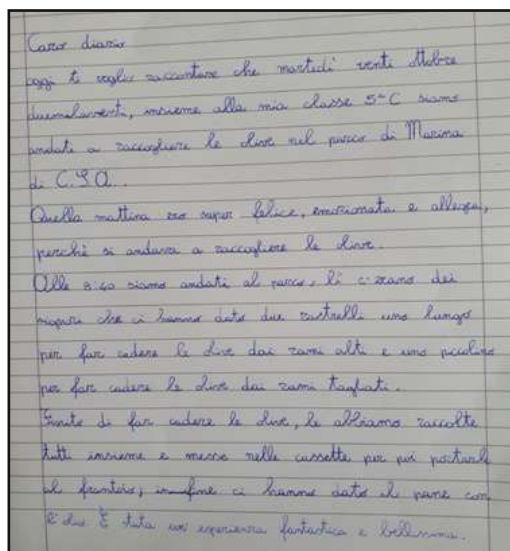 Caro diario
oggi ti voglio raccontare che martedì venti Ottobre
duemilaventi, insieme alla mia classe 5^C siamo
andati a raccogliere le olive nel parco di Marina
di C.S.A..
Quella mattina ero super felice, emozionata e allegra,
perchè si andava a raccogliere le olive.
Alle 8:40 siamo andati al parco, lì c'erano dei
signori che ci hanno dato due rastrelli uno lungo
per far cadere le olive dai rami alti e uno piccolino
per far cadere le olive dai rami tagliati.
Finito di far cadere le olive, le abbiamo raccolte
tutti insieme e messe nelle cassette per poi portarle
al frantoio, infine ci hanno dato il pane con
l'olio È stata un'esperienza fantastica e bellissima.